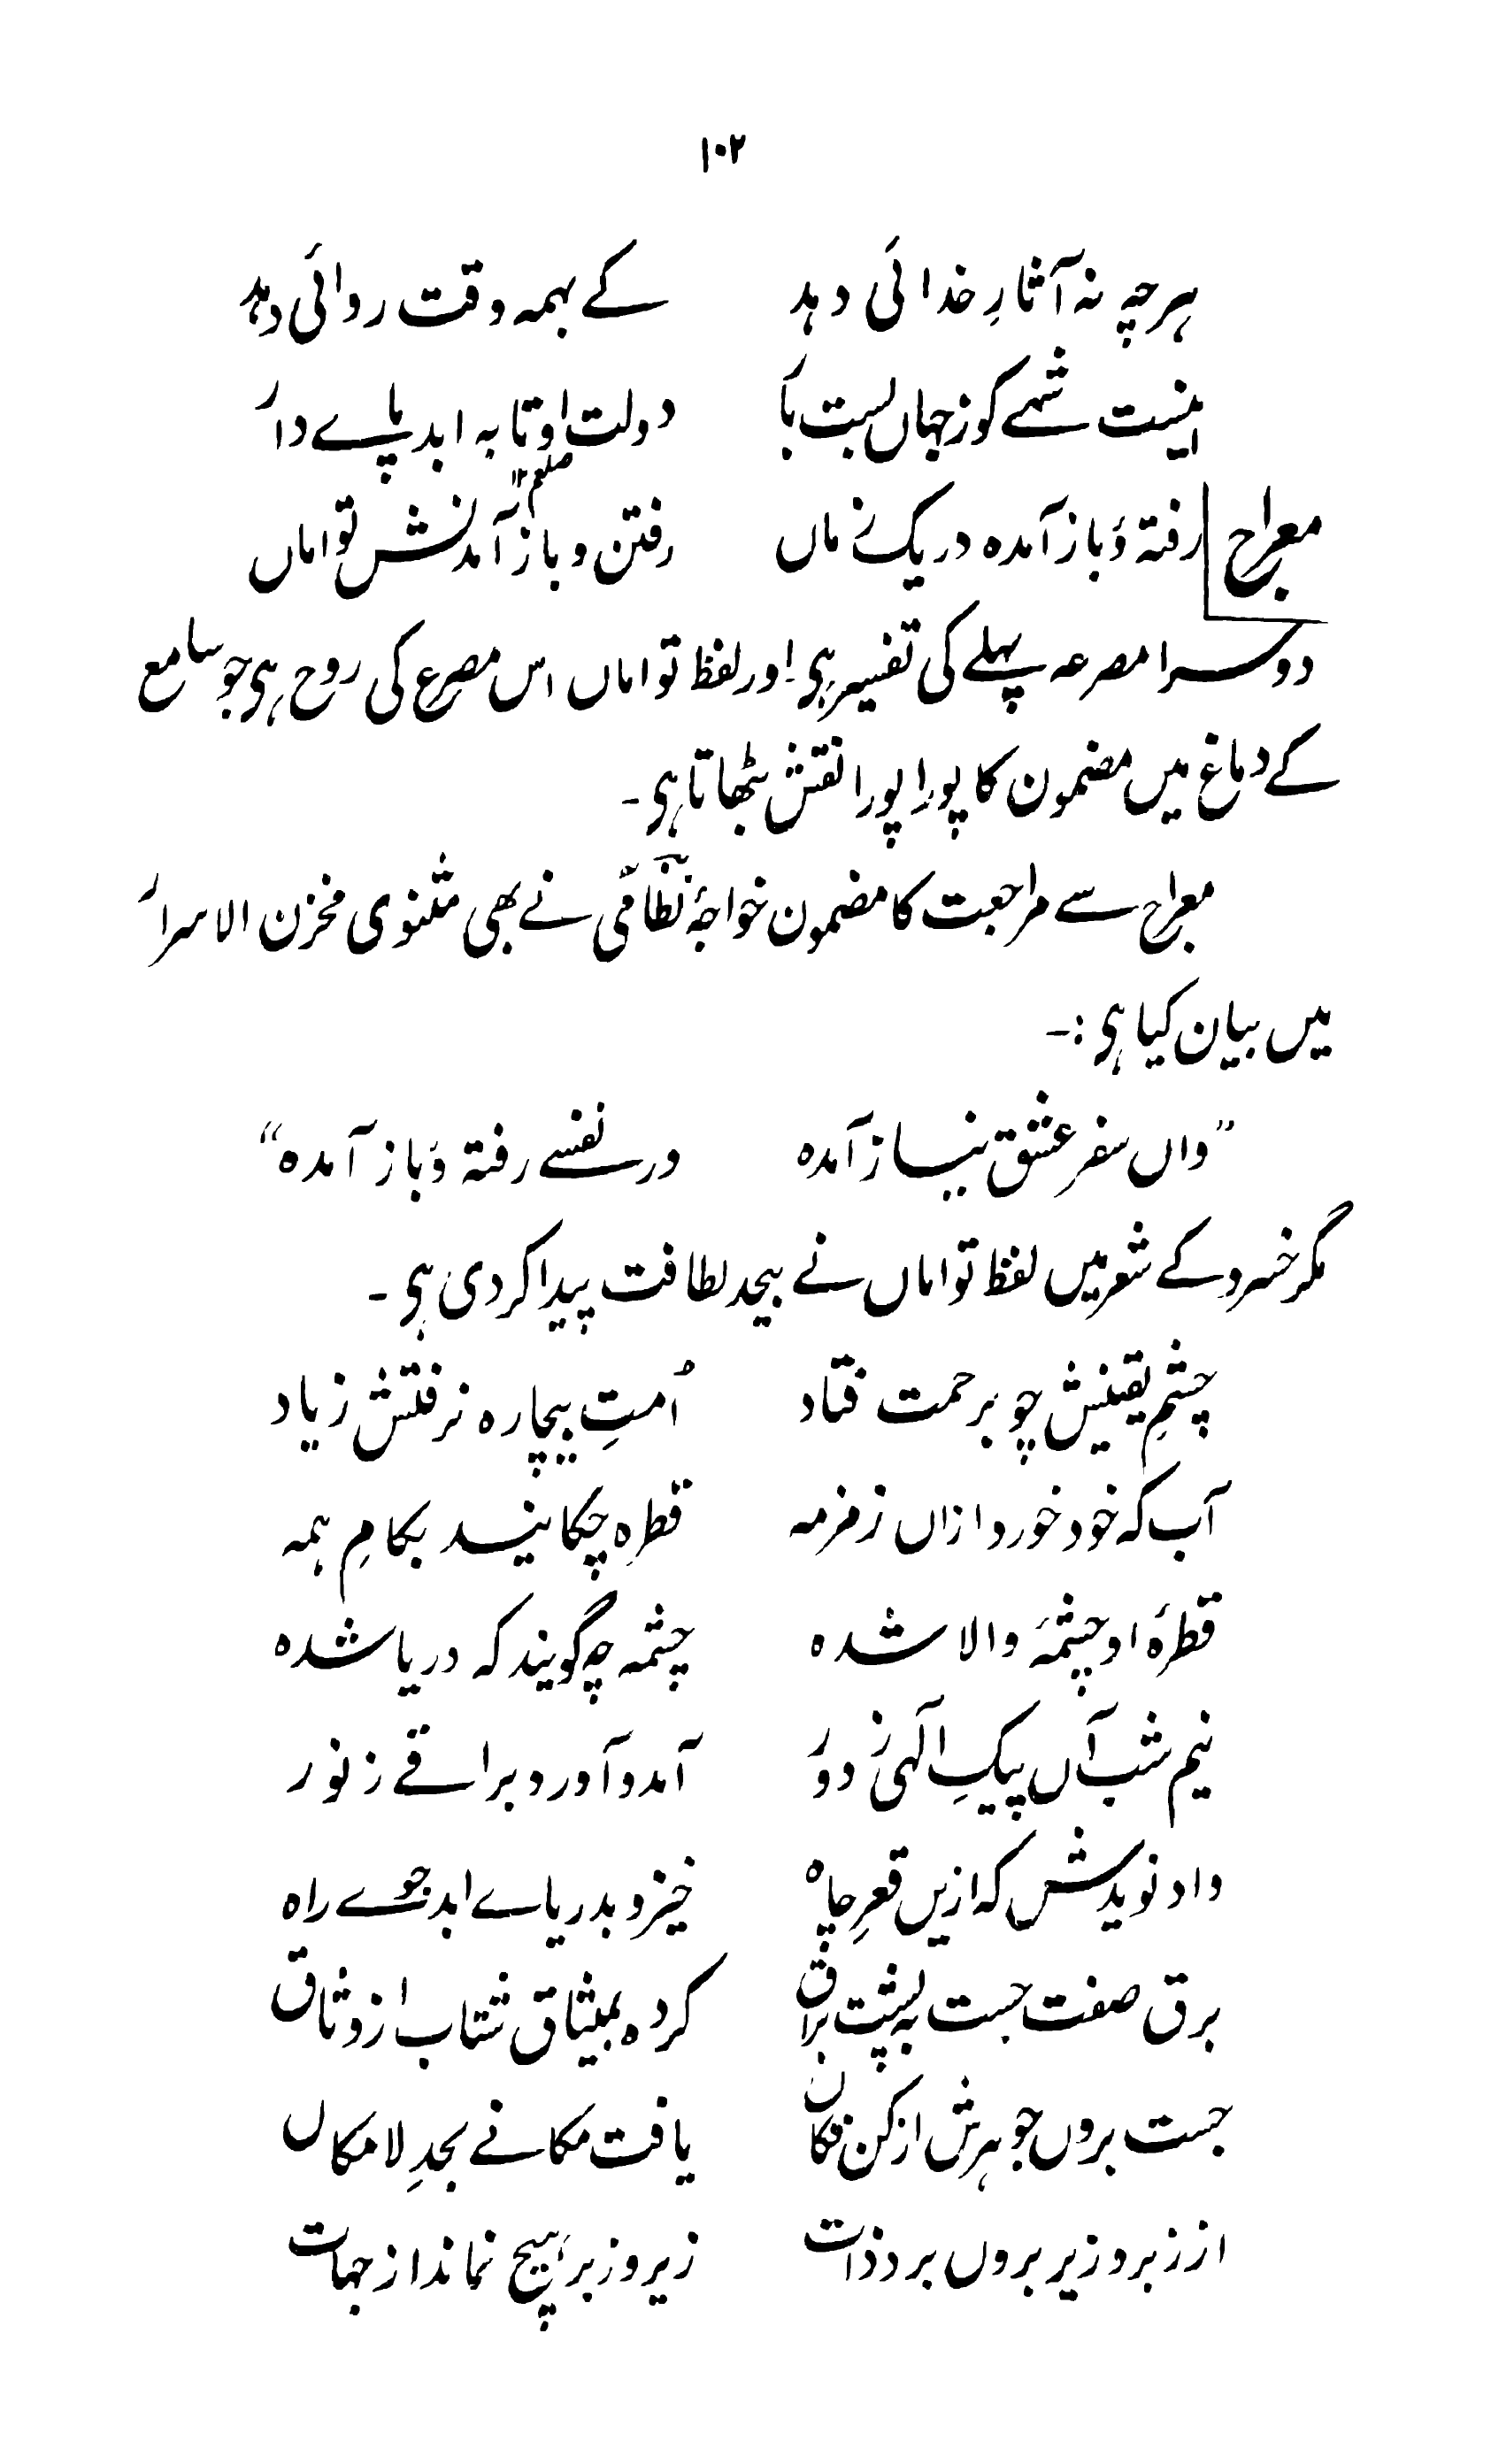 ۱۰۲
ہرچہ نہ آثارِ خدائی دہد کے ہمہ وقت روائی دہد
اینست شہے کوز جہاں بست بار دولت او تا بہ ابد پاے دار
معراج رفتۂ و باز آمدہ در یک زماں رفتن و باز آمدنش صلعم ۱۲ تو اماں
دوسرا مصرعہ پہلے کی تفسیر ہی اور لفظ تو اماں اس مصرع کی روح ہی جو سامع
کے دماغ میں مضمون کا پورا پورا نقش بٹھاتا ہی۔
معراج سے مراجعت کا مضمون خواجۂ نظامیؒ نے بھی مثنوی مخزن الاسرار
میں بیان کیا ہی :۔
”واں سفرِ عشق نیاز آمدہ در نفسے رفتۂ و باز آمدہ“
مگر خسرو کے شعر میں لفظ تو اماں نے بیحد لطافت پیدا کر دی ہی ۔
چشمِ یقینش چو بر حمت فتاد اُمتِ بیچارہ نرفتش زیاد
آب کہ خود خورد ازاں زمزمہ قطرہ چکانید بکامِ ہمہ
قطرۂ او چشمۂ والا شدہ چشمہ چہ گویند کہ دریا شدہ
نیم شب آں پیکِ الٰہی ز دور آمد و آورد براقے ز نور
داد نویدش کہ ازیں قعرِ چاہ خیز و بدریاے ابد جوے راہ
برق صفت جست بہ پشت براق کردہ بمیثاق شتاب از وثاق
جست بروں جوہرش از کن فکاں یافت مکانے بحدِ لامکاں
از زبر و زیر بروں برد ذات زیر و زبر ہیچ نماند از جہات